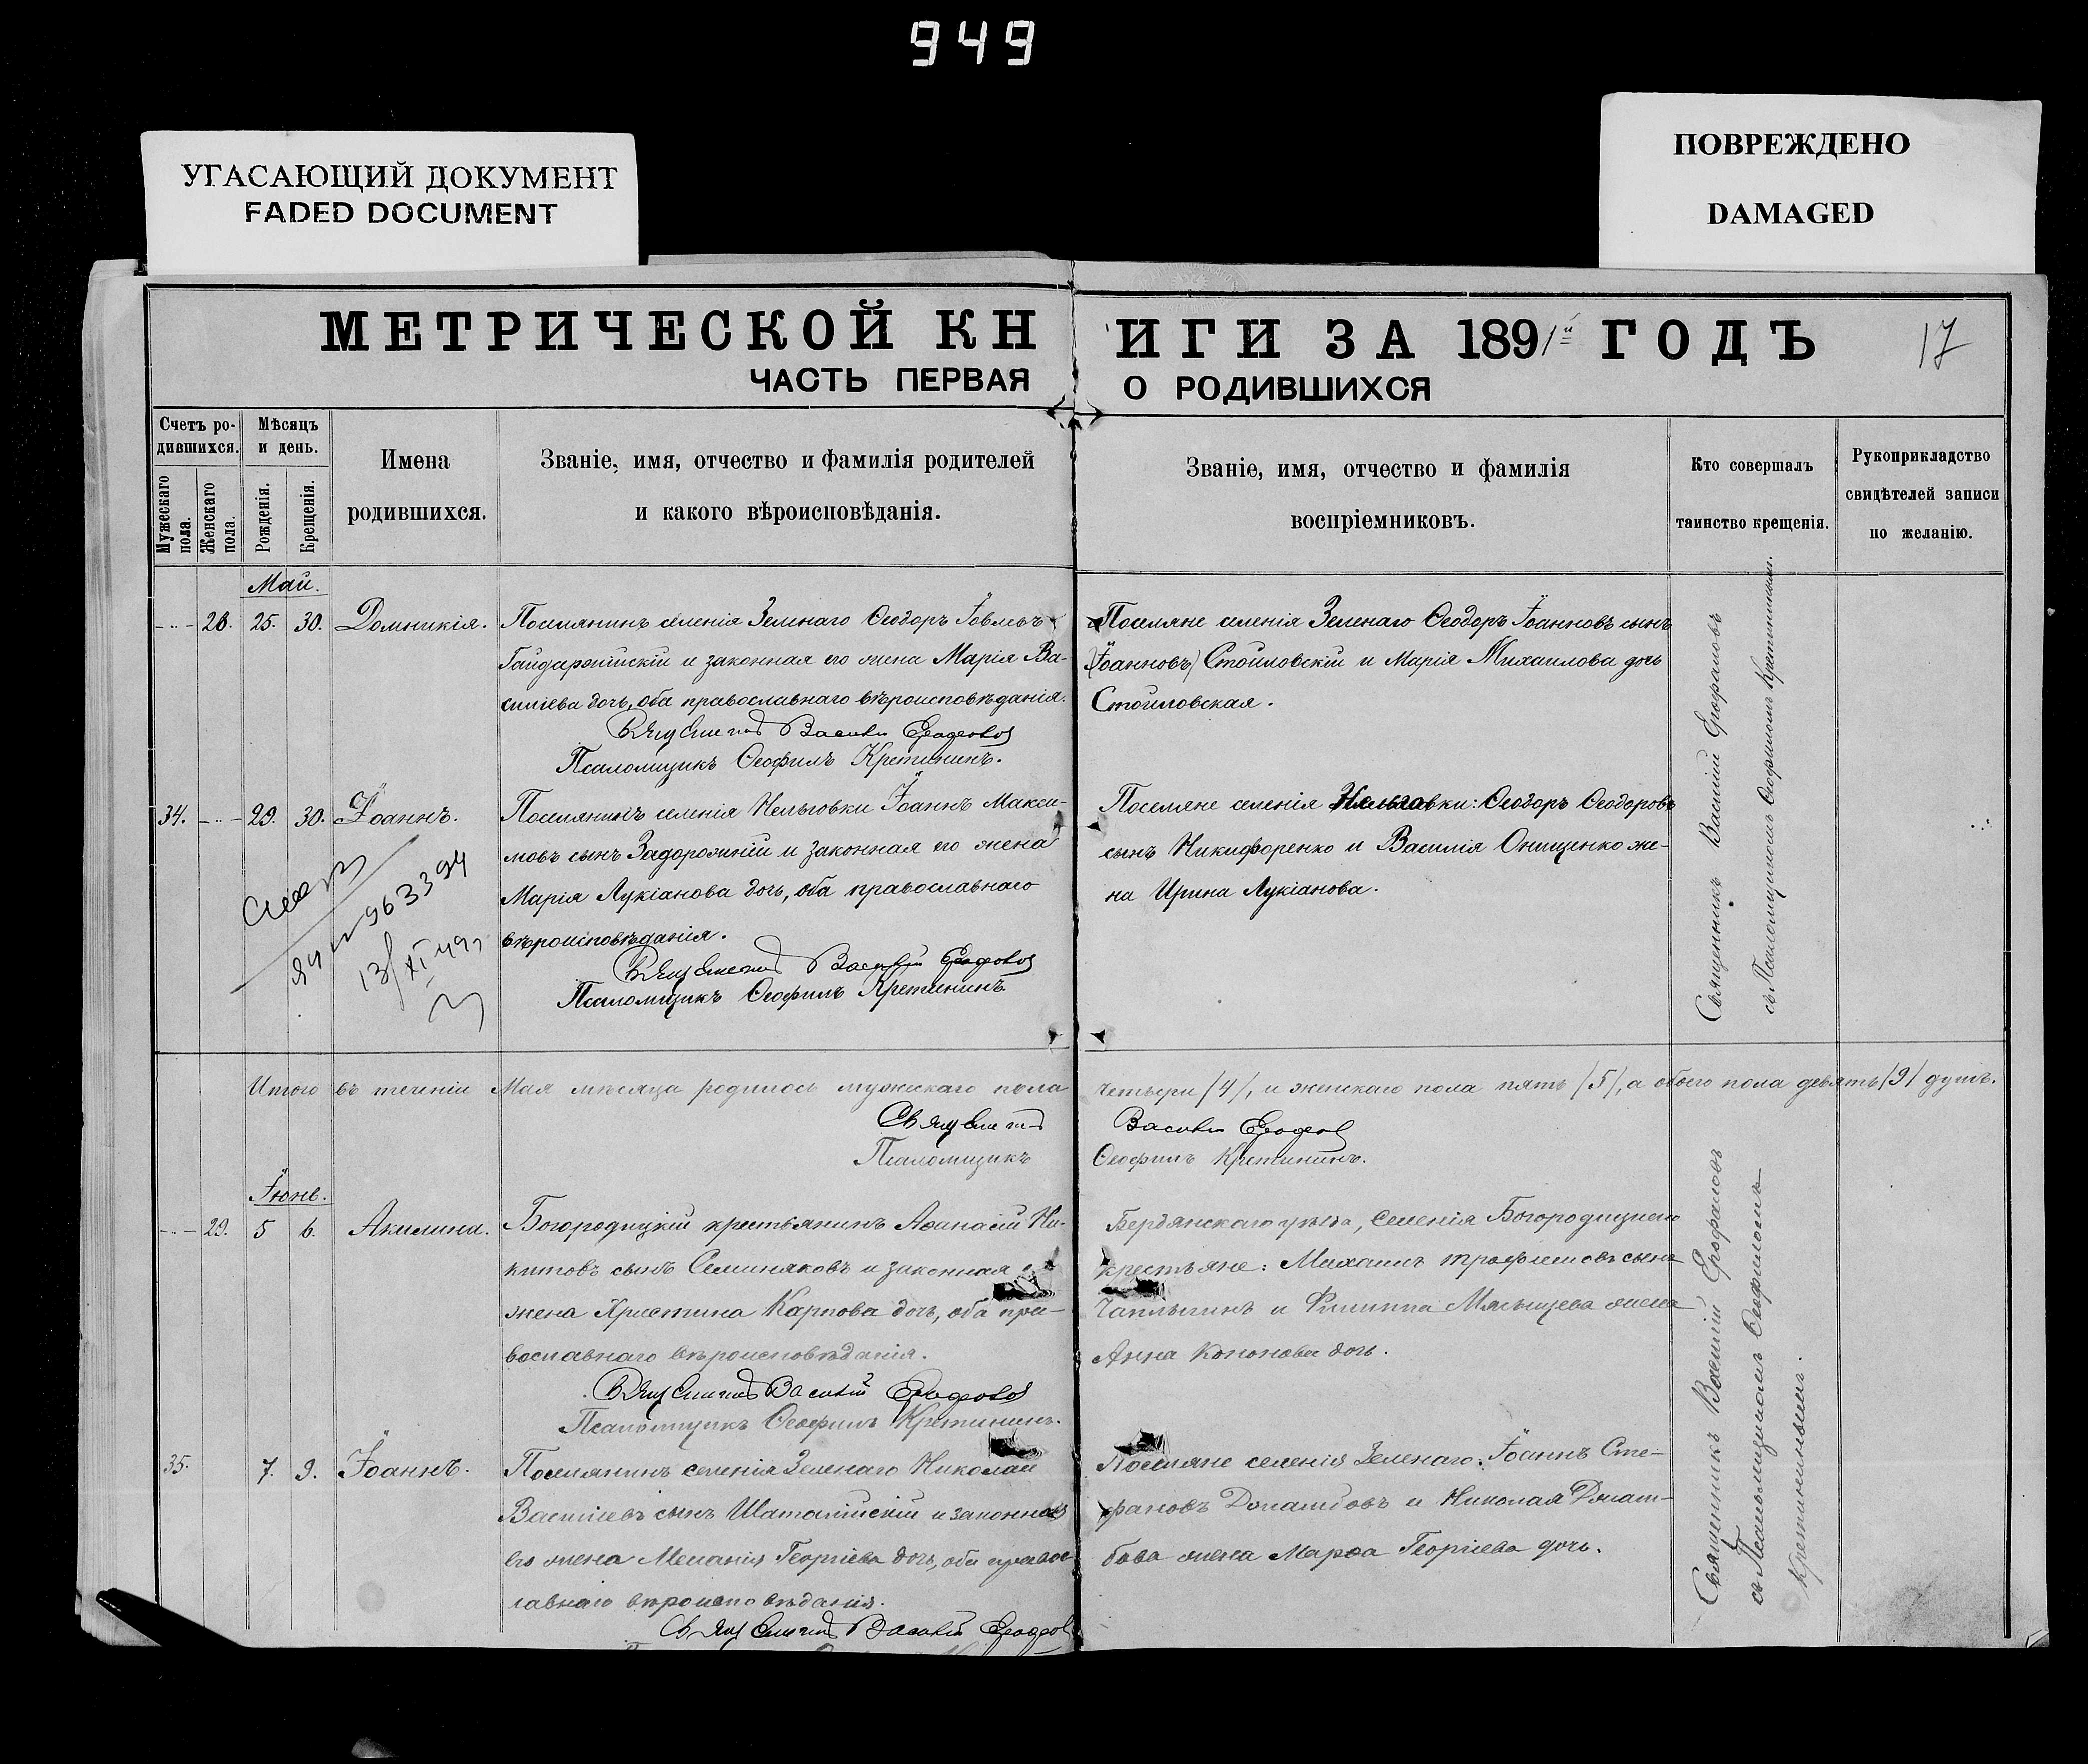 949
УГАСАЮЩИЙ ДОКУМЕНТ
FADED DOCUMENT
ПОВРЕЖДЕНО
DAMAGED
МЕТРИЧЕСКОЙ КНИГИ ЗА 1891й ГОДЪ
17
ЧАСТЬ ПЕРВАЯ О РОДИВШИХСЯ
Счетъ ро-
дившихся.
Мужескаго пола.
Женскаго пола.
Мѣсяцъ
и день.
Рожденія.
Крещенія.
Имена
родившихся.
Званіе, имя, отчество и фамилія родителей
и какого вѣроисповѣданія.
Званіе, имя, отчество и фамилія
воспріемниковъ.
Кто совершалъ
таинство крещенія.
Рукоприкладство
свидѣтелей записи
по желанію.
Май.
28. 25. 30. Домникія.
Поселянинъ селенія Зеленаго Ѳеодоръ
Гайдаржийскій и законная его жена Марія Ва-
силіева дочь, оба православнаго вѣроисповѣданія.
Священникъ Василій Ерофаловъ
Псаломщикъ Ѳеофилъ Кретининъ.
Поселяне селенія Зеленаго Ѳеодоръ Іоанновъ сынъ
(Іоанновъ) Стоиловскій и Марія Михаилова дочь
Стоиловская.
34. 29. 30. Іоаннъ.
Поселянинъ селенія Нельговки Іоаннъ Макси-
мовъ сынъ Задорожній и законная его жена
Марія Лукіанова дочь, оба православнаго
вѣроисповѣданія.
Священникъ Василій Ерофаловъ
Псаломщикъ Ѳеофилъ Кретининъ
Поселяне селенія Нельговки: Ѳеодоръ Ѳеодоровъ
сынъ Никифоренко и Василія Онищенко же-
на Ирина Лукіанова.
ЯЧ № 963394
13/XI 49
Священникъ Василій Ерофаловъ
съ Псаломщикомъ Ѳеофиломъ Кретининым.
Итого въ теченіи Мая мѣсяца родилось мужескаго пола четыри /4/, и женскаго пола пять /5/, а обоего пола девять /9/ душъ.
Священникъ Василій Ерофаловъ
Псаломщикъ Ѳеофилъ Кретининъ.
Іюнь.
29. 5 6. Акилина.
Богородицкій крестьянинъ Аѳанасій Ни-
китовъ сынъ Семиняковъ и законная его
жена Христина Карпова дочь, оба пра-
вославнаго вѣроисповѣданія.
Священникъ Василій Ерофаловъ
Псаломщикъ Ѳеофилъ Кретининъ.
Бердянскаго уѣзда, селенія Богородицкаго
крестьяне: Михаилъ Трофимовъ сынъ
Чаплыгинъ и Филиппа Мясищева жена
Анна Кононова дочь.
35. 7. 9. Іоаннъ.
Поселянинъ селенія Зеленаго Николай
Василіевъ сынъ и законная
его жена Меланія Георгіева дочь, оба правос-
лавнаго вѣроисповѣданія.
Священникъ Василій Ерофаловъ
Поселяне селенія Зеленаго: Іоаннъ Сте-
фановъ и Николая
жена Марѳа Георгіева дочь.
Священникъ Василій Ерофаловъ
съ Псаломщикомъ Ѳеофиломъ
Кретининымъ.